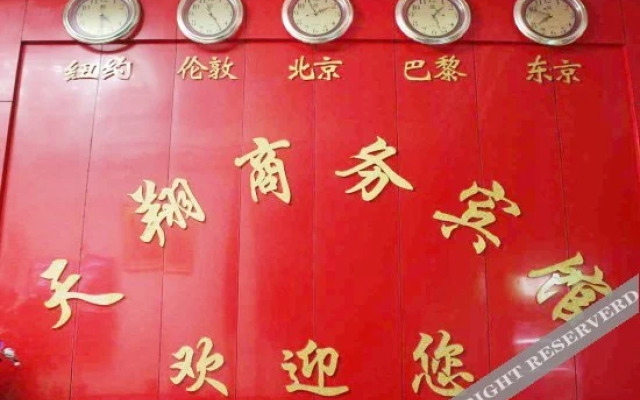 纽约 伦敦 北京 巴黎 东京
天翔商务宾馆
欢迎您
RIGHT RESERVERD